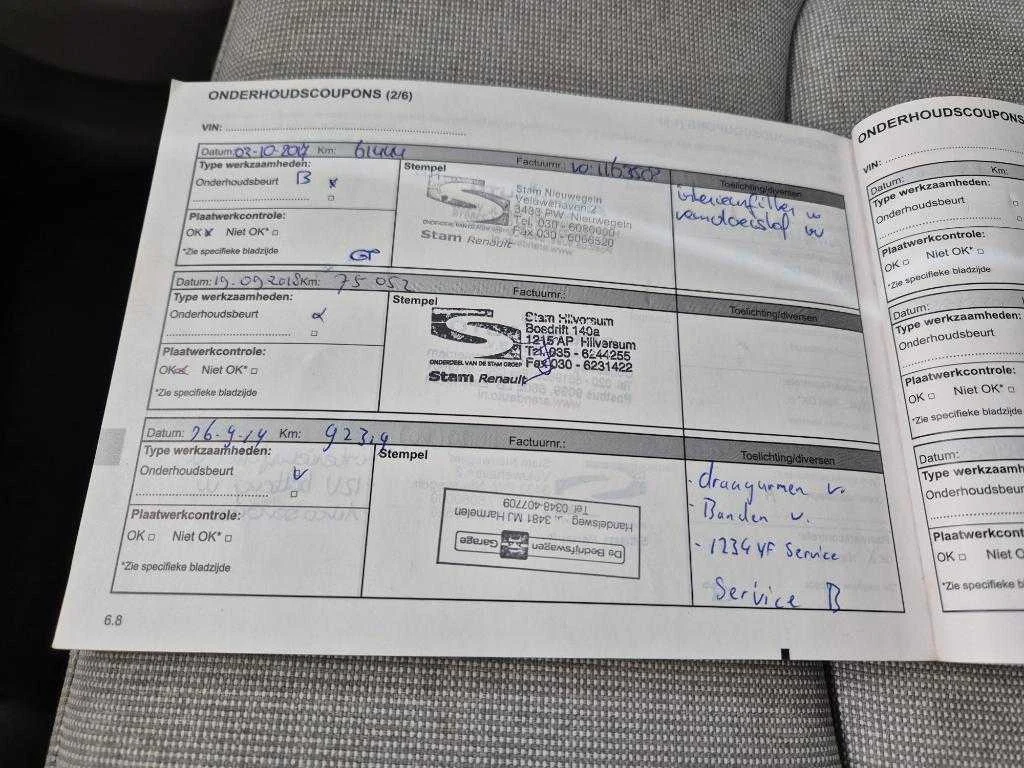 ONDERHOUDSCOUPONS (2/6)
VIN:
Datum: 03-10-2017 Km: 61444 Factuurnr.: Toelichting/diversen
Type werkzaamheden: Stempel
Onderhoudsbeurt B
Plaatwerkcontrole:
OK Niet OK*
*Zie specifieke bladzijde
Stam Nieuwegein
Veluwehaven 2
3433 PW Nieuwegein
Tel. 030 - 6086600
Fax 030 - 6066520
ONDERDEEL VAN DE STAM GROEP
Stam Renault
interieurfilter
remvloeistof
Datum: 19.09 2018 Km: 75 052 Factuurnr.: Toelichting/diversen
Type werkzaamheden: Stempel
Onderhoudsbeurt
Plaatwerkcontrole:
OK Niet OK*
*Zie specifieke bladzijde
Stam Hilversum
Bosdrift 140a
1215 AP Hilversum
Tel. 035 - 6244255
Fax 030 - 6231422
ONDERDEEL VAN DE STAM GROEP
Stam Renault
Datum: 26.4.19 Km: Factuurnr.: Toelichting/diversen
Type werkzaamheden: Stempel
Onderhoudsbeurt
Plaatwerkcontrole:
OK Niet OK*
*Zie specifieke bladzijde
De Bedrijfswagen Garage
Handelsweg 3481 MJ Harmelen
Tel. 0348-407709
- draagarmen v.
- Banden v.
- 1234 YF Service
Service B
6.8
ONDERHOUDSCOUPONS
VIN:
Datum: Km:
Type werkzaamheden:
Onderhoudsbeurt
Plaatwerkcontrole:
OK Niet OK*
*Zie specifieke bladzijde
Datum:
Type werkzaamheden:
Onderhoudsbeurt
Plaatwerkcontrole:
OK Niet OK*
*Zie specifieke bladzijde
Datum:
Type werkzaamh
Onderhoudsbeurt
Plaatwerkcont
OK Niet O
*Zie specifieke b